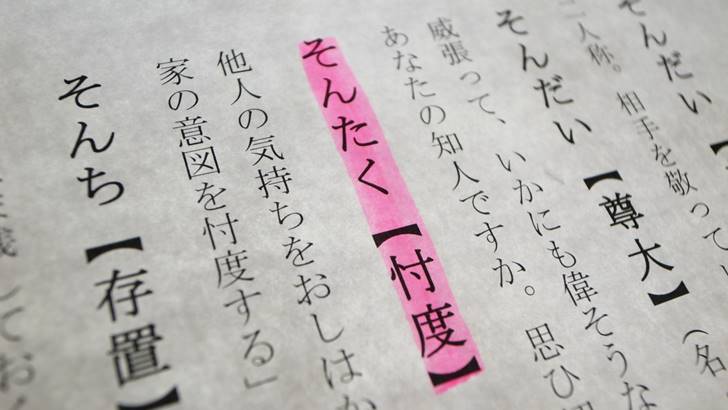 そんだい【
二人称。相手を敬って
そんだい【尊大】(名
威張って、いかにも偉そうな
あなたの知人ですか。思ひ
そんたく【忖度】
他人の気持ちをおしはか
家の意図を忖度する」
そんち【存置】
しておく